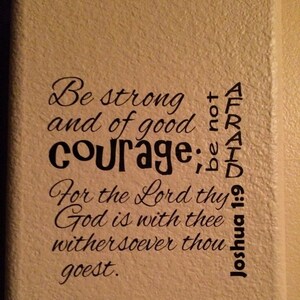 Be strong
and of good
courage;
be not
AFRAID
For the Lord thy
God is with thee
withersoever thou
goest.
Joshua 1:9